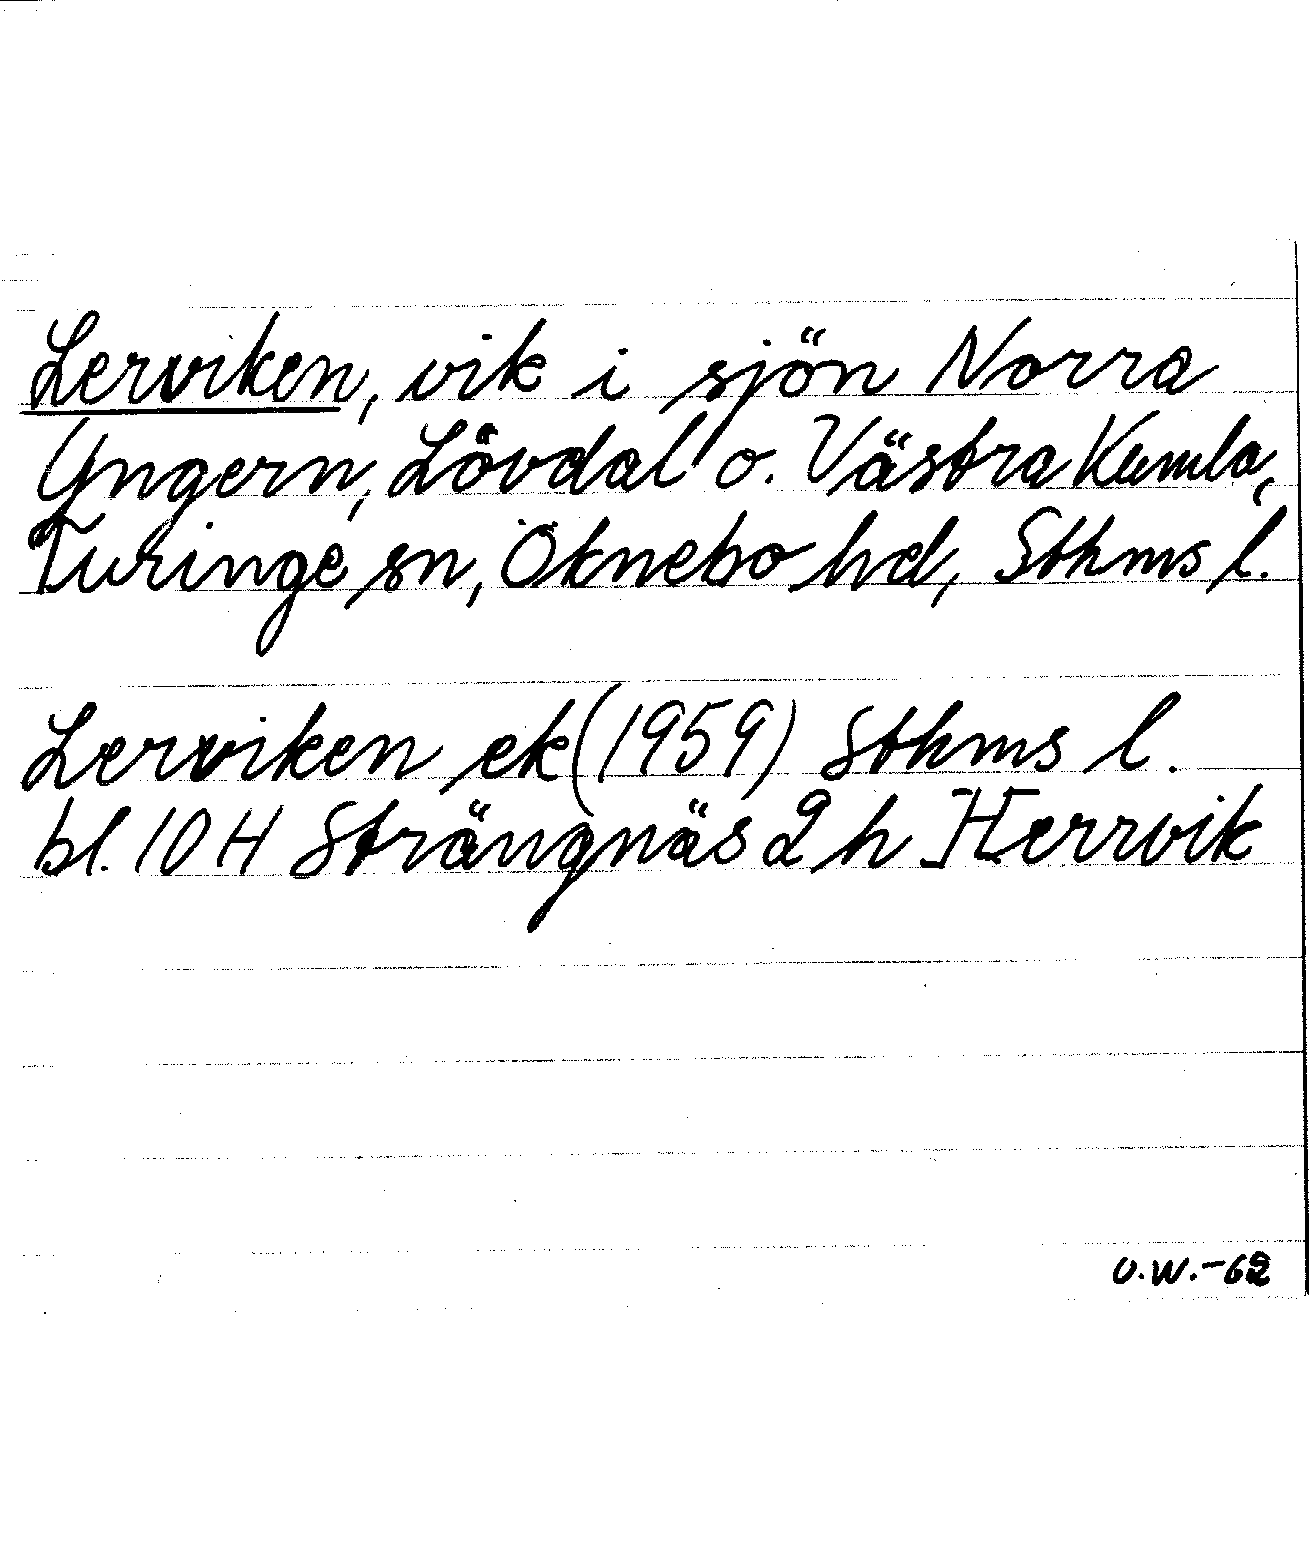 Lerviken, vik i sjön Norra
Yngern, Lövdal o. Västra Kumla,
Turinge sn, Öknebo hd, Sthms l.
Lerviken ek (1959) Sthms l.
bl. 10 H Strängnäs 2 h Herrvik
O.W.-62